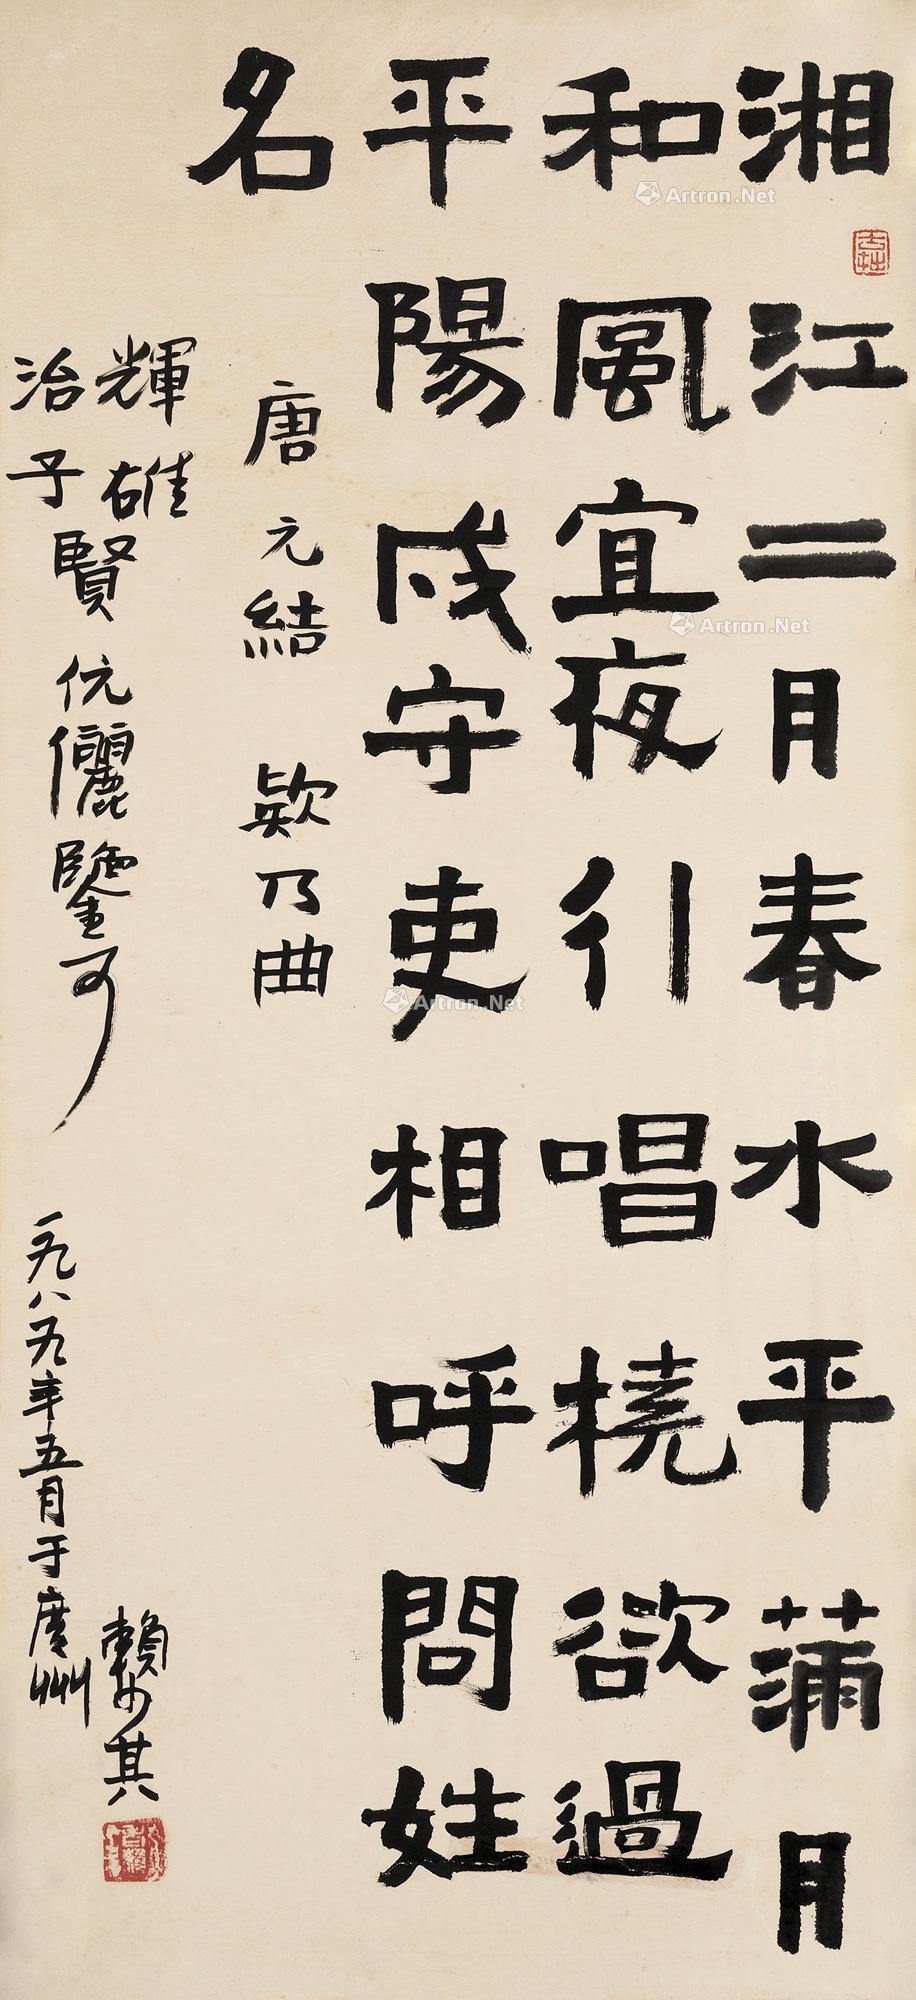 湘江二月春水平蒲月
和風宜夜行唱橈欲過
平陽戍守吏相呼問姓
名
唐元結 欵乃曲
輝雄
治子賢伉儷鑒可
一九八九年五月于廣州
賴少其
Artron.Net
Artron.Net
Artron.Net